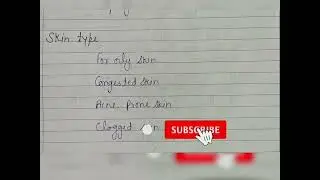 Skin type
For oily skin
Congested skin
Acne Prone skin
Clogged
SUBSCRIBE